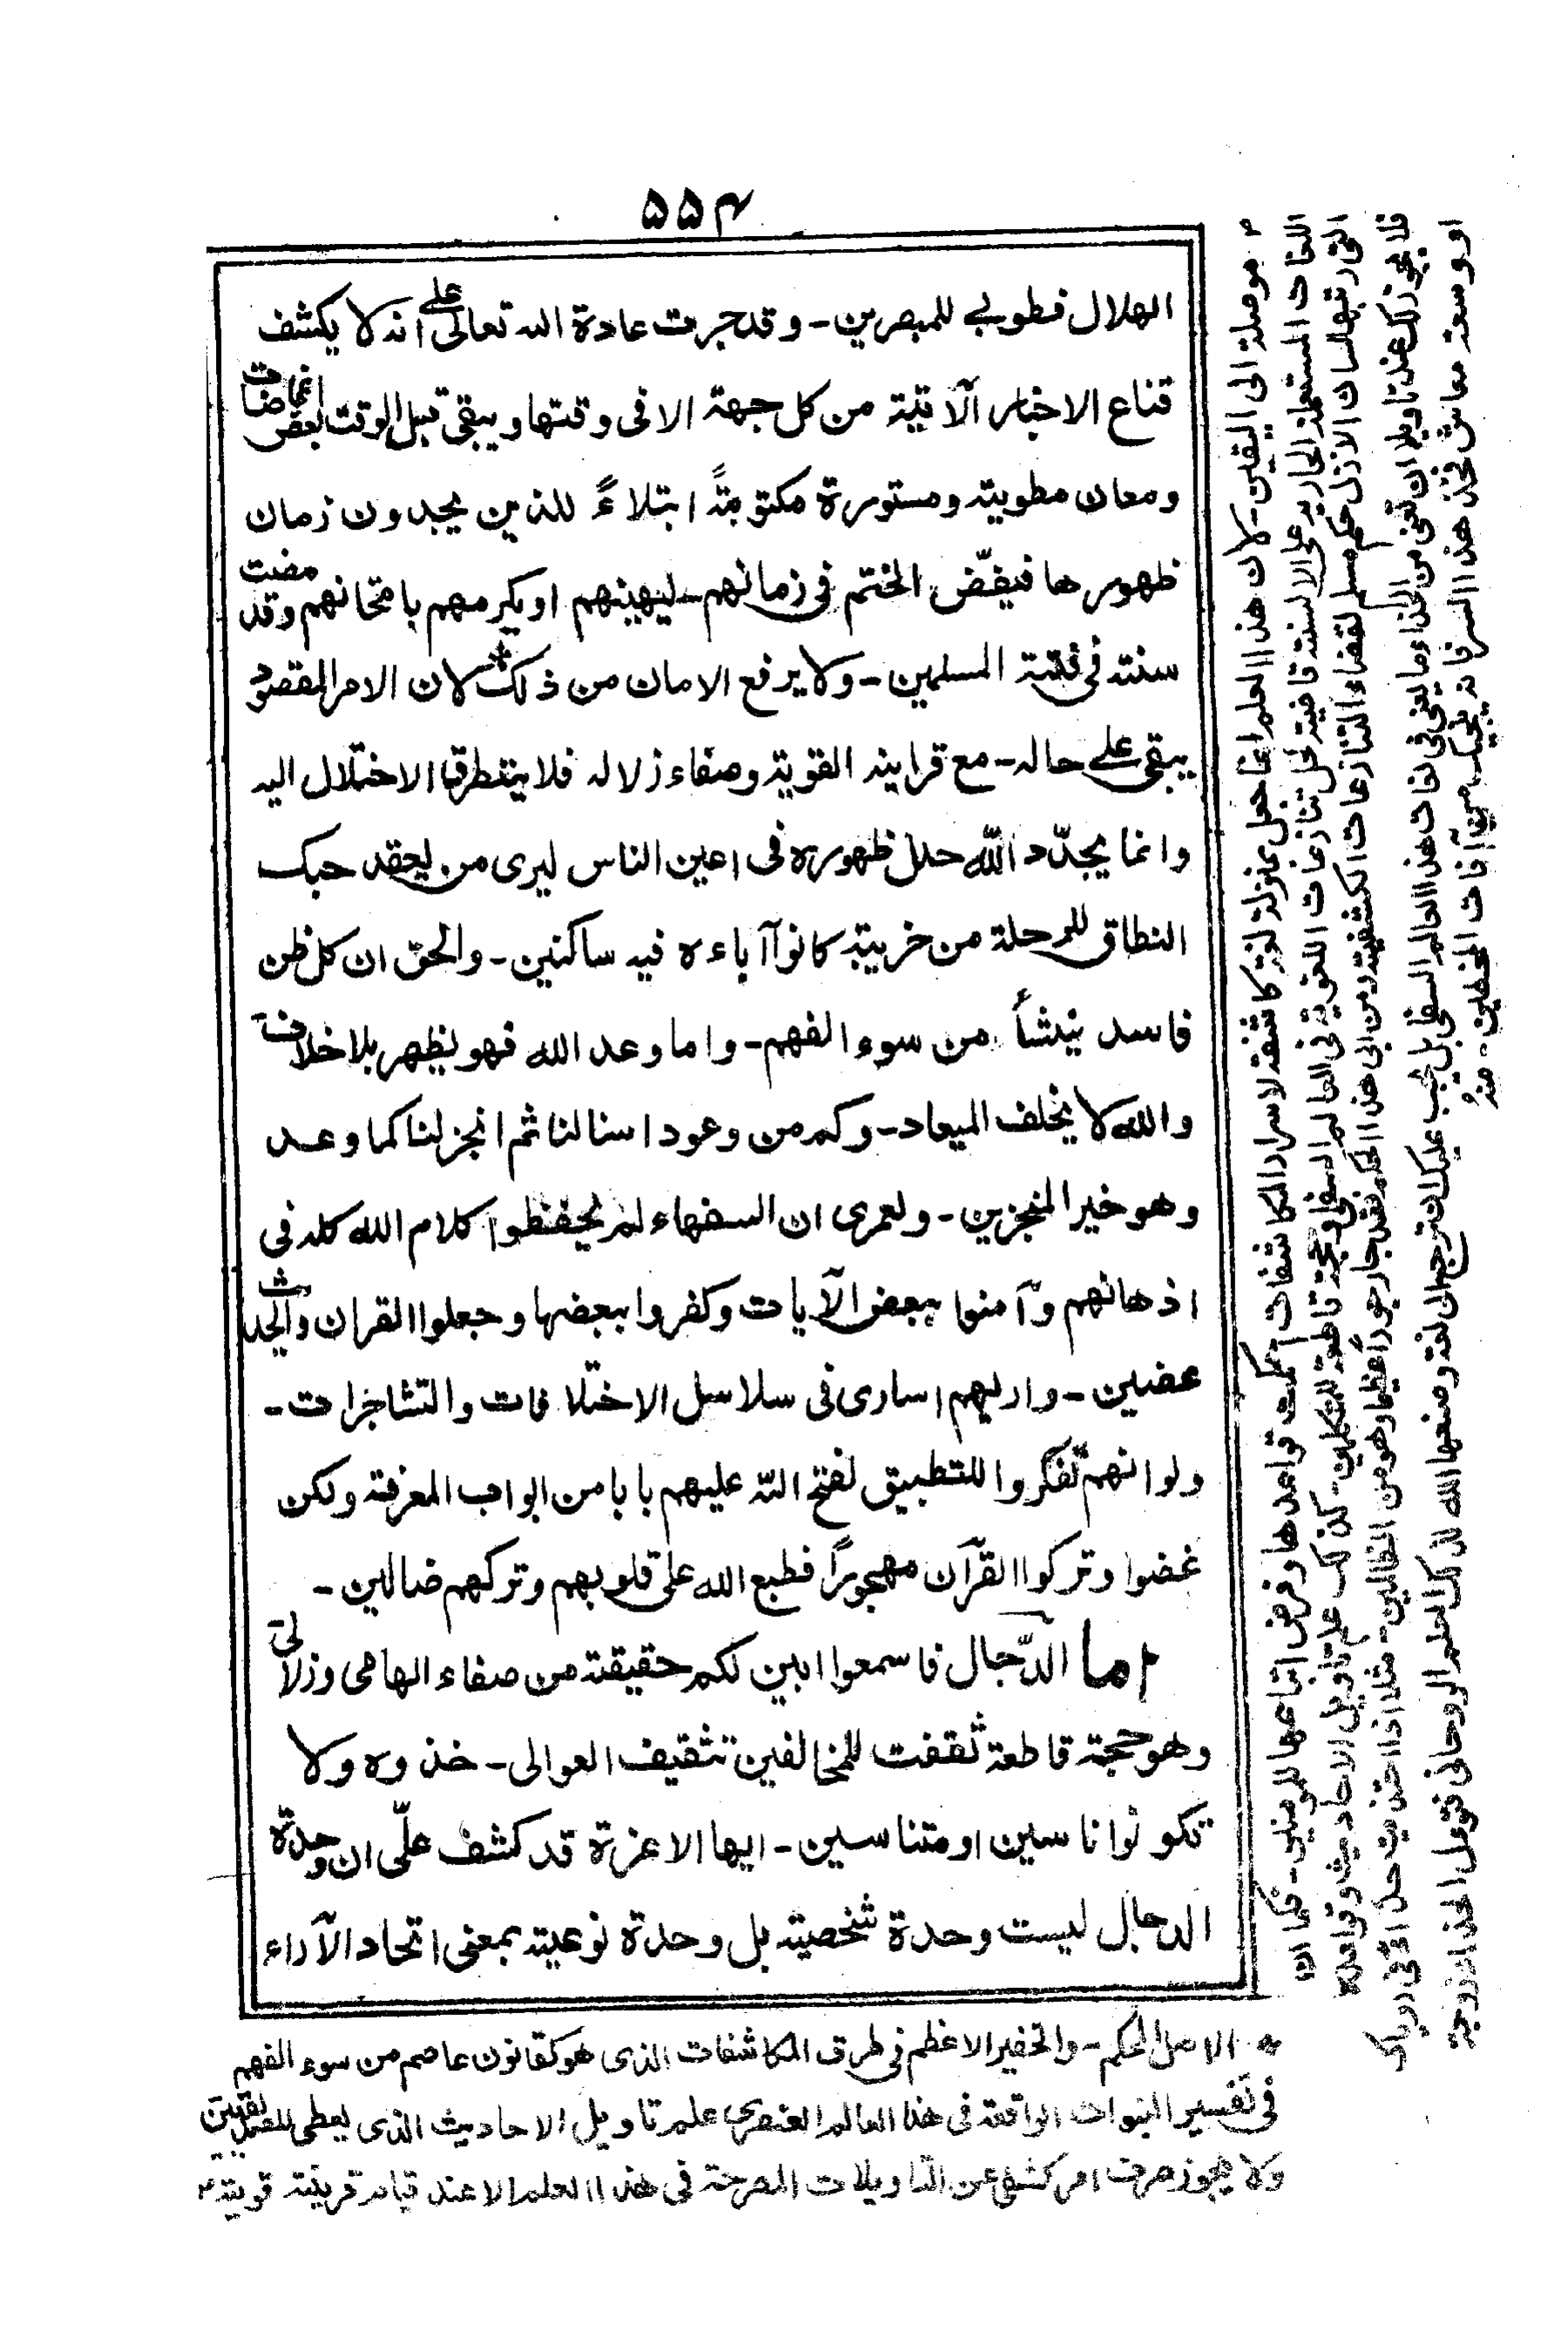 ۵۵۴
الهلال فطوبى للمبصرين - وقد جرت عادة الله تعالى على انه لا يكشف
قناع الاخبار الآتية من كل جهة الا فى وقتها ويبقى قبل الوقت بعض اغماضات
ومعان مطوية ومستورة مكتومةً ابتلاءً للذين يجدون زمان
ظهورها فيفضّ الختم فى زمانهم - ليهينهم او يكرمهم بامتحانهم وقد مضت
سنته فى فتنة المسلمين - ولا يرفع الامان من ذلك * لان الامر المقصود
يبقى على حاله - مع قراينه القوية وصفاء زلاله فلا يتطرق الاختلال اليه
وانما يجدّد الله حلل ظهوره فى اعين الناس ليرى من يعقد حبك
النطاق للرحلة من خربة كانوا آباءه فيه ساكنين - والحق ان كل ظن
فاسد ينشأ من سوء الفهم - واما وعد الله فهو يظهر بلا خلاف
والله لا يخلف الميعاد - وكم من وعود اسنا لنا ثم انجز لنا كما وعد
وهو خير المنجزين - ولعمرى ان السفهاء لم يحفظوا كلام الله كله فى
اذهانهم وآمنوا ببعض الآيات وكفروا ببعضها وجعلوا القران والحديث
عضين - واريهم اسارى فى سلاسل الاختلافات والتشاجرات -
ولو انهم تفكروا للتطبيق لفتح الله عليهم بابا من ابواب المعرفة ولكن
غضوا وتركوا القرآن مهجورًا فطبع الله على قلوبهم وتركهم ضالين -
اما الدّجال فاسمعوا ابين لكم حقيقته من صفاء الهامى وزلالى
وهو حجة قاطعة ثقفت للمخالفين تثقيف العوالى - خذوه ولا
تكونوا ناسين او متناسين - ايها الاعزة قد كشف علىّ ان وحدة
الدجال ليست وحدة شخصية بل وحدة نوعية بمعنى اتحاد الآراء
* الاصل المحكم - والخفير الاعظم فى طرق المكاشفات الذى هو كقانون عاصم من سوء الفهم
فى تفسير النبوات الواقعة فى هذا العالم العنصرى علم تاويل الاحاديث الذى يعطى للصديقين
ولا يجوز صرف امر كشفى عن التاويلات المصرحة فى هذا العلم الا عند قيام قرينة قوية
موصلة الى اليقين - لان هذا العلم انما جعل بمنزلة لغة كاشفة لاسرار المكاشفات احكمت قواعدها وفرض اتباعها للمؤمنين - فكما ان
اللغات المستعملة الجارية على الالسنة قاضية لحل تنازعات اللغوية فى العالم السفلى وحجة قاطعة للمتكلمين كذلك علم تاويل الاحاديث وقواعده
التى رتبها لسان الازل حكم مسلم لقضاء التنازعات الكشفية ومن ابى هذا الحكم فقد جار جورًا عظيما وهو من الظالمين - مثلا اذا اخذيت حذاءً فى رؤياك
فلا يجوز لك عند تاويله ان تعنى من الحذاء ما يعنى فى لغات هذا العالم السفلى بل يجب عليك ان ترجع الى لغة وضعها الله لذلك العلم الروحانى فتوول الحذاء زوجة
او وسعة معاش فخذ هذا السر فانه ينجيك من آفات المخطين - منه